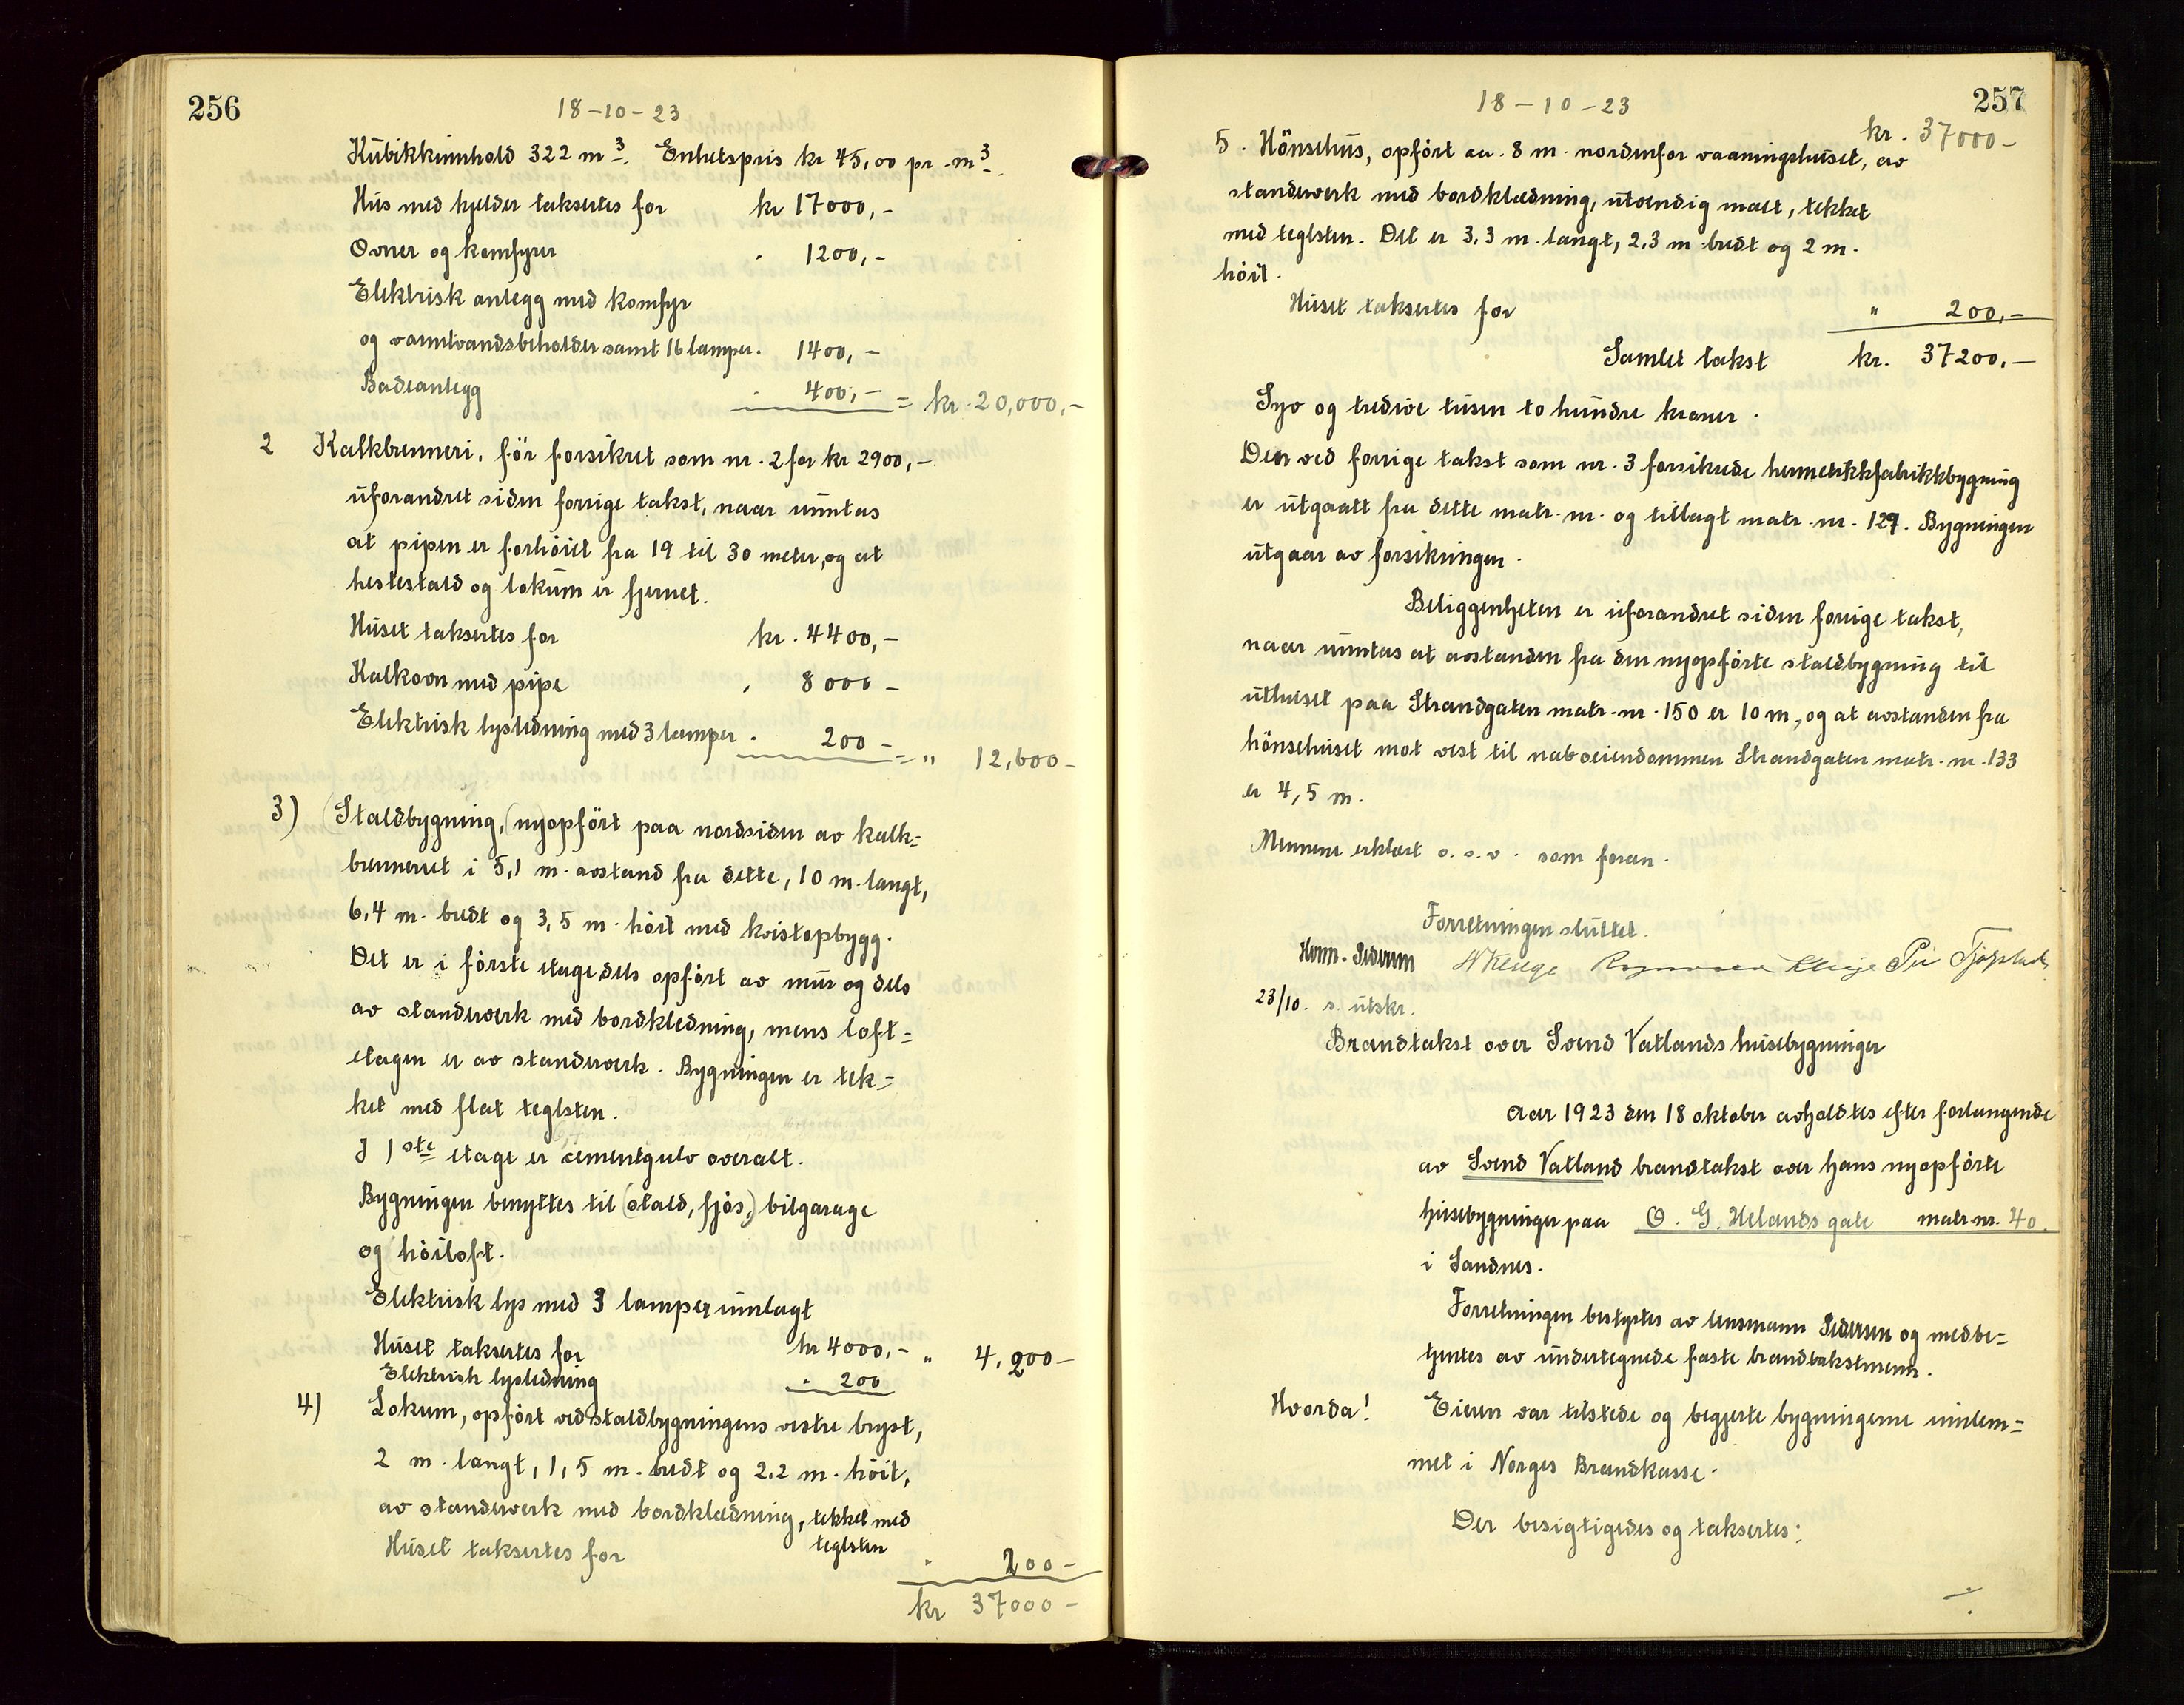 256
18-10-23
Kubikkinnhold 322 m3. Enhetspris kr 45,00 pr. m3.
Hus med kjelder taksertes for kr 17000,-
Ovner og komfyrer " 1200,-
Elektrisk anlegg med komfyr
og varmtvandsbeholder samt 16 lamper. 1400,-
Badeanlegg " 400,- = kr. 20,000,-
2 Kalkbrenneri, før forsikret som nr. 2 for kr 2900,-
uforandret siden forrige takst, naar unntas
at pipen er forhöiet fra 19 til 30 meter, og at
hestestald og lokum er fjernet.
Huset taksertes for kr. 4400,-
Kalkovn med pipe " 8000 -
Elektrisk lysledning med 3 lamper " 200 - = " 12,600-
3) (Staldbygning, (nyopført paa nordsiden av kalk=
brenneriet i 5,1 m. avstand fra dette, 10 m. langt,
6,4 m. bredt og 3,5 m. höit med kvistopbygg.
Det er i förste etage dels opfört av mur og dels
av standerverk med bordkledning, mens loft=
etagen er av standerverk. Bygningen er tek=
ket med flat teglsten.
I 1ste etage er cementgulv overalt.
Bygningen benyttes til (stald, fjös,) bilgarage
og (höiloft.
Elektrisk lys med 3 lamper innlagt
Huset taksertes for kr 4000,- " 4,200-
Elektrisk lysledning " 200
4) Lokum, opfört ved staldbygningens vestre bryst,
2 m. langt, 1,5 m. bredt og 2,2 m. höit,
av standerverk med bordklædning, tekket med
teglsten
Huset taksertes for " 200-
kr 37000-
257
18-10-23
kr. 37000-
5. Hönsehus, opfört ca. 8 m. nordenfor vaaningshuset, av
standerverk med bordklædning, utvendig malt, tekket
med teglsten. Det er 3,3 m. langt, 2,3 m bredt og 2 m.
höit.
Huset taksertes for " 200,-
Samlet takst kr. 37200,-
Syv og tredive tusen to hundre kroner.
Den ved forrige takst som nr. 3 forsikrede hermetikkfabrikkbygning
er utgaatt fra dette matr. nr. og tillagt matr. nr. 127. Bygningen
utgaar av forsikringen.
Beliggenheten er uforandret siden forrige takst,
naar unntas at avstanden fra den nyopförte staldbygning til
uthuset paa Strandgaten matr. nr. 150 er 10 m., og at avstanden fra
hönsehuset mot vest til naboeiendommen Strandgaten matr. nr. 133
er 4,5 m.
Mennene erklært o. s. v. som foran.
Forretningen sluttet.
Herm. Pedersen
23/10. s. utskr.
Brandtakst over Svend Vatlands husebygninger
Aar 1923 den 18 oktober avholdtes efter forlangende
av Svend Vatland brandtakst over hans nyopförte
husebygninger paa O. G. Uelands gate matr. nr. 40.
i Sandnes.
Forretningen bestyrtes av lensmann Pedersen og medbe=
tjentes av undertegnede faste brandtakstmenn.
Hvorda! Eieren var tilstede og begjerte bygningerne innlem=
met i Norges Brandkasse.
Der besigtigedes og taksertes: